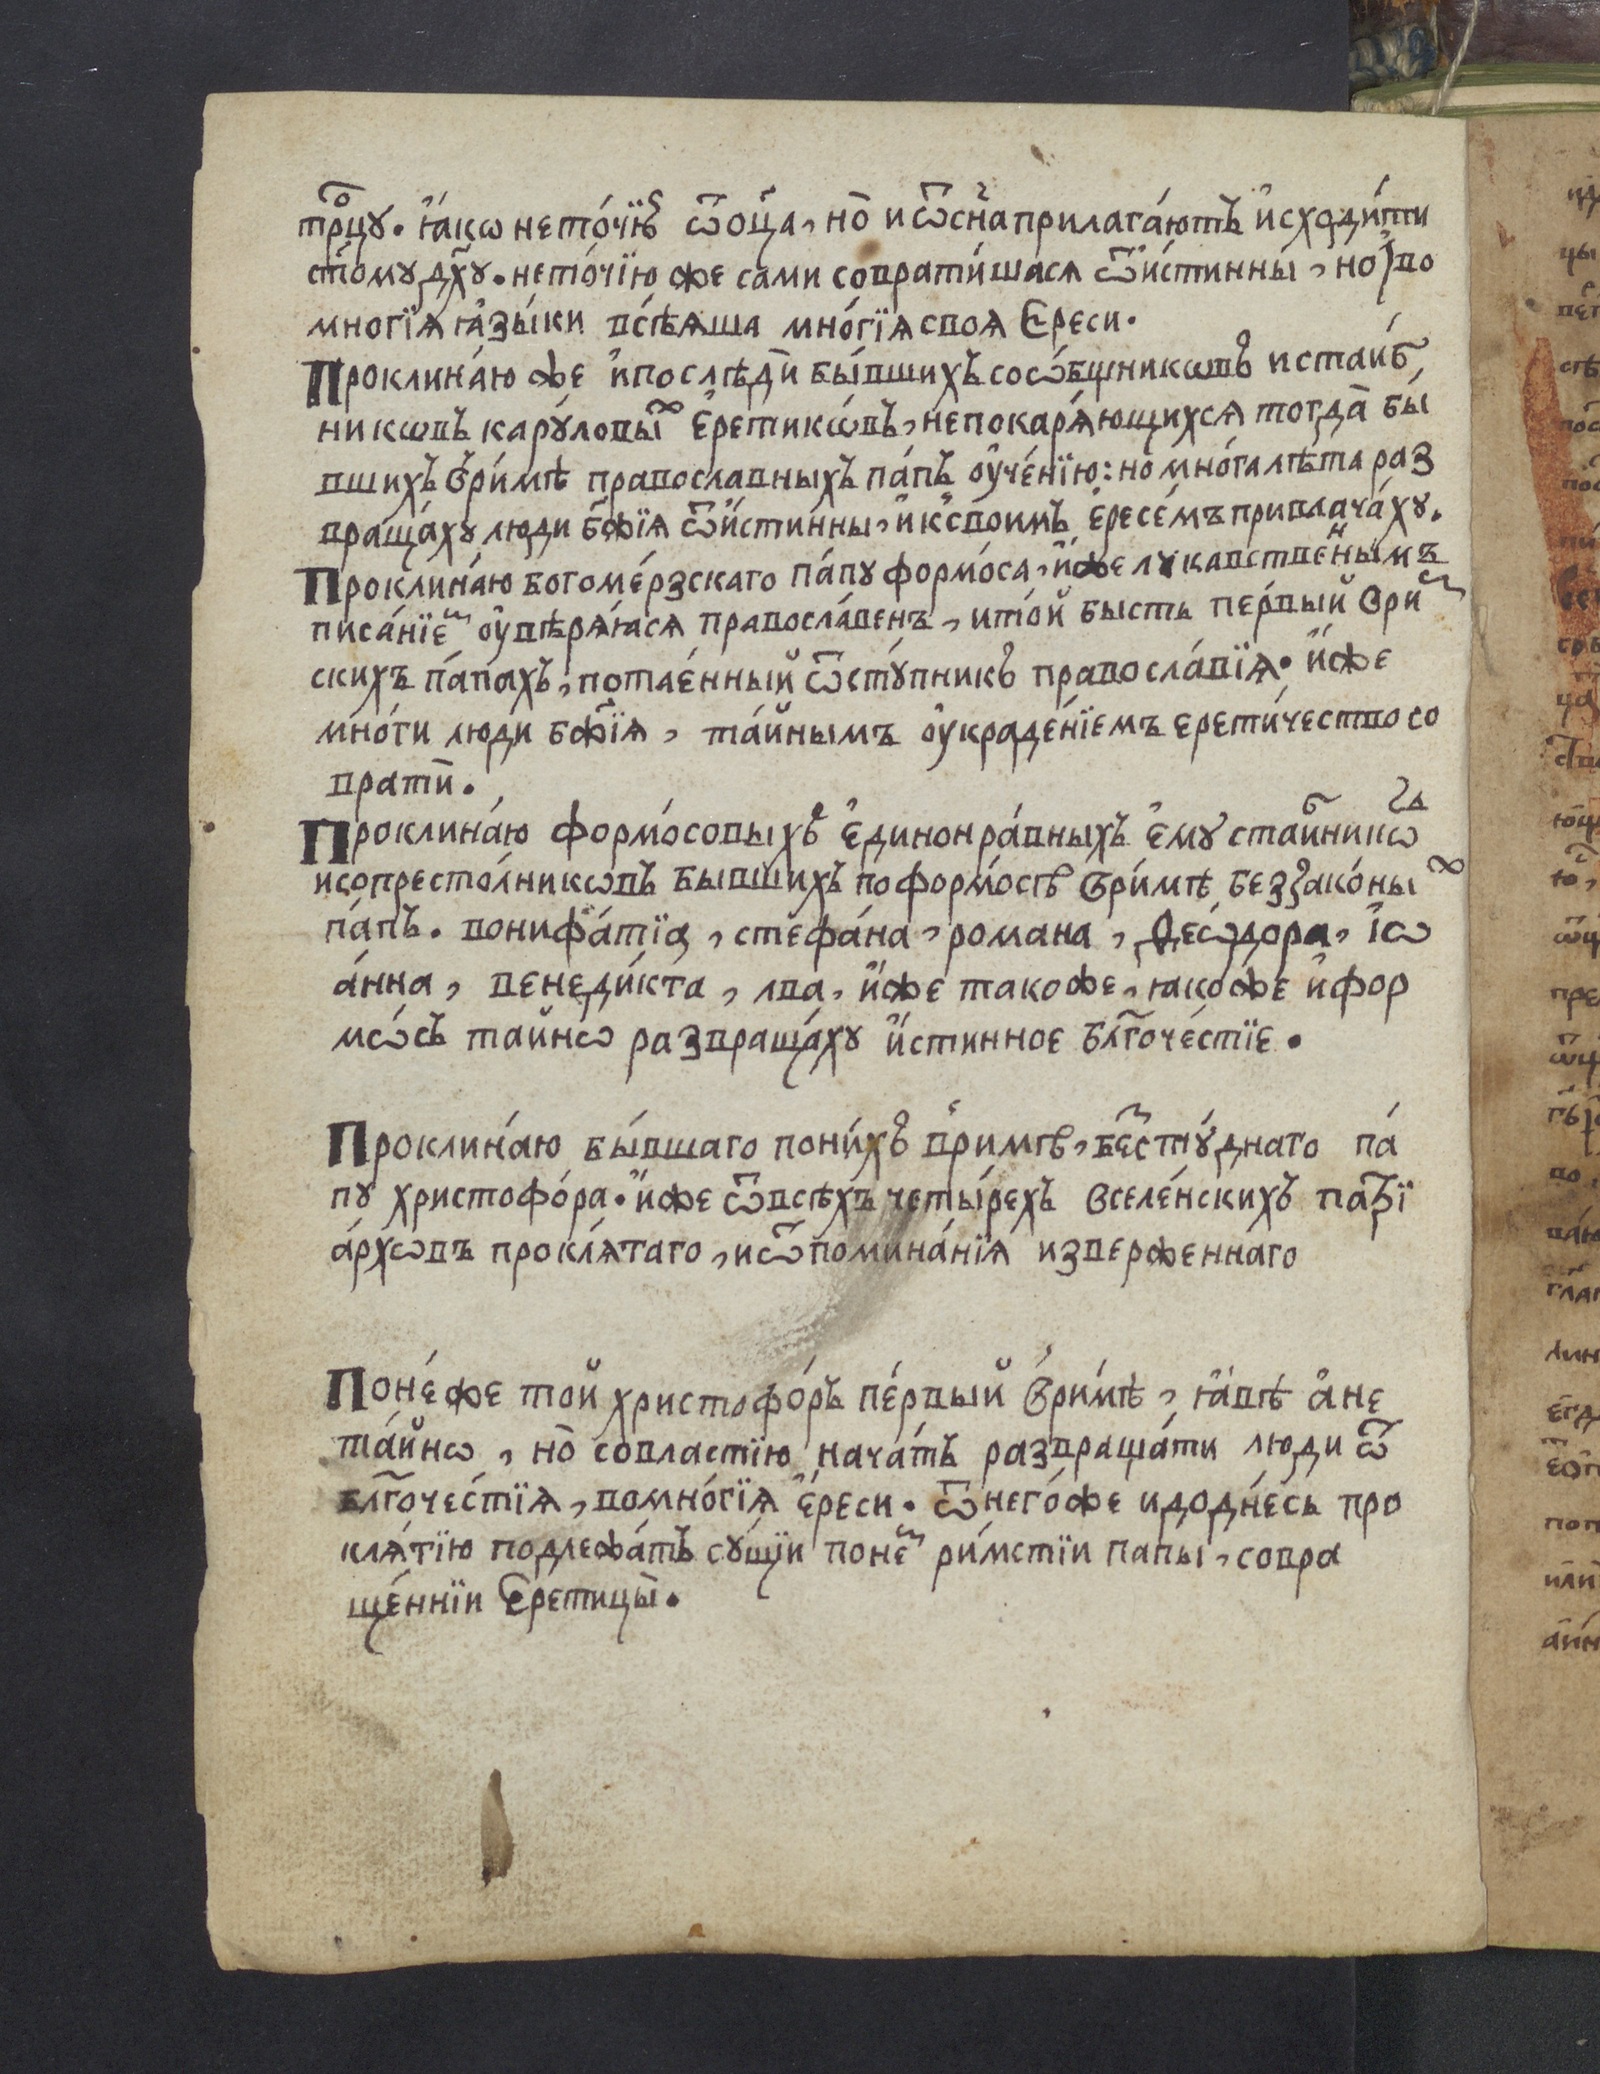 трⷪцꙋ. ꙗ҆́кѡ неточїю ѿ оц҃а, но̀ и ѿ сн҃а прилага́ютъ и҆сходи́ти
ст҃о́мꙋ дх҃ꙋ. нето́чїю же сами соврати́шася ѿ и́стинны, но̀ во
многїѧ ꙗ҆зы́ки всѣ́ѧша мно́гїѧ своѧ̀ Є҆реси.
Проклина́ю же и҆ послѣдѝ бы́вшихъ соѻ́бщникѡвъ и стаиб
никѡвъ карꙋ́ловыⷯ є҆ретикѡ́въ, непокарѧ́ющихсѧ тогда̀ бы́
вшихъ в ри́мѣ православныхъ па́пъ оу҆че́нїю: но мно́га лѣ́та раз
враща́хꙋ люди бж҃їѧ ѿ и́стинны, и҆ к своимъ є҆ресе́мъ привлача́хꙋ.
Проклина́ю богоме́рзскаго па́пꙋ формо́са, и҆́же лꙋкавствеⷩ҇нымъ
писа́нїеⷨ оу҆вѣрѧ́ꙗсѧ правосла́венъ, и то́й бысть пе́рвый в риⷨ
скихъ па́пахъ, потае́нный ѿстꙋ́пникъ правосла́вїѧ. и҆́же
мно́ги люди бж҃їѧ, та́йнымъ оу҆краде́нїемъ єрети́чество со
вратѝ.
Проклина́ю формо́совыхъ є҆динонра́вныхъ є҆мꙋ̀ стаибникѡⷡ
и сопресто́лникѡвъ бывшихъ по формо́сѣ в ри́мѣ беззако́ныⷯ
па́пъ. вонифа́тїѧ, стефа́на, романа, Ѳеѡ́дора, і҆ѡ
а́нна, венеди́кта, лва, и҆́же такоже, ꙗко́же и҆ фор
мѡ́съ тайнѡ развраща́хꙋ и҆́стинное бл҃гоче́стїе.
Проклина́ю бы́вшаго по ни́хъ в ри́мѣ, беⷭ҇стꙋ́днаго па́
пꙋ христофо́ра. и҆́же ѿ всѣ́хъ четы́рехъ вселе́нскихъ паⷮрї
а́рхѡвъ проклѧ́таго, и ѿ помина́нїѧ изверженнаго
Поне́же той христофо́ръ пе́рвый в ри́мѣ, ꙗ҆́вѣ а҆ не
та́йнѡ, но̀ со властїю нача́тъ развраща́ти люди ѿ
бл҃гоче́стїѧ, во мно́гїѧ є҆́реси. ѿ него́же и до дне́сь про
клѧ́тїю подлежа́тъ сꙋ́щїи по неⷨ ри́мстїи папы, совра
ще́ннїи Є҆ретицы̀.